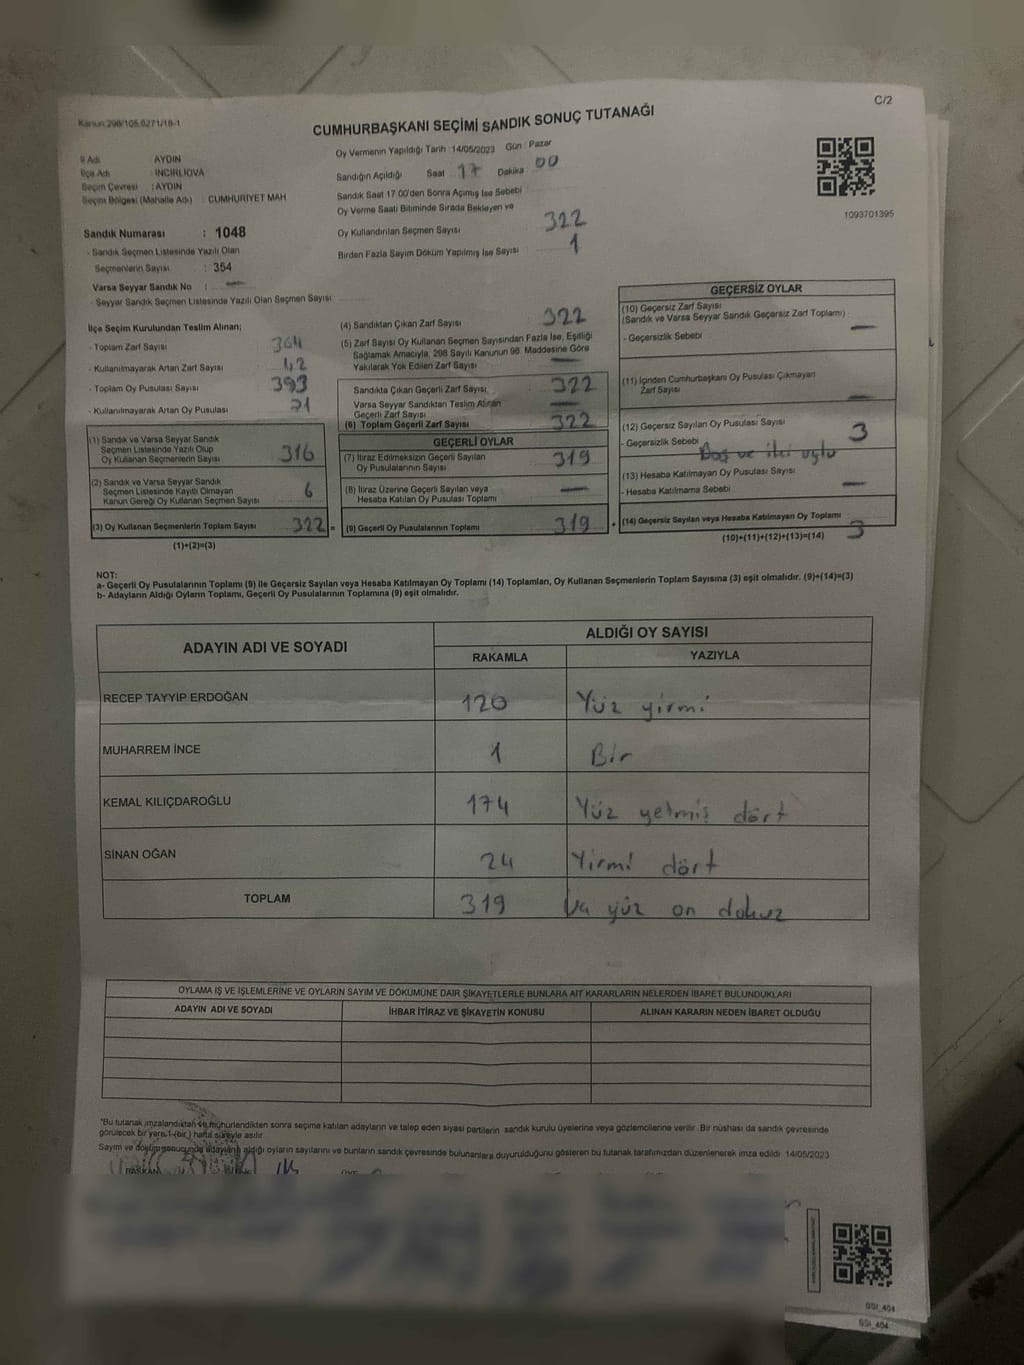 C/2
Kanun:298/105,6271/18-1
CUMHURBAŞKANI SEÇİMİ SANDIK SONUÇ TUTANAĞI
İl Adı AYDIN
İlçe Adı : İNCİRLİOVA
Seçim Çevresi : AYDIN
Seçim Bölgesi (Mahalle Adı) : CUMHURİYET MAH
Sandık Numarası : 1048
- Sandık Seçmen Listesinde Yazılı Olan
Seçmenlerin Sayısı : 354
Varsa Seyyar Sandık No : —
- Seyyar Sandık Seçmen Listesinde Yazılı Olan Seçmen Sayısı
Oy Vermenin Yapıldığı Tarih : 14/05/2023 Gün : Pazar
Sandığın Açıldığı Saat 17 Dakika 00
Sandık Saat 17:00'den Sonra Açılmış İse Sebebi
Oy Verme Saati Bitiminde Sırada Bekleyen ve
Oy Kullandırılan Seçmen Sayısı 322
Birden Fazla Sayım Döküm Yapılmış İse Sayısı 1
1093701395
İlçe Seçim Kurulundan Teslim Alınan;
- Toplam Zarf Sayısı 364
- Kullanılmayarak Artan Zarf Sayısı 42
- Toplam Oy Pusulası Sayısı 393
- Kullanılmayarak Artan Oy Pusulası 71
(1) Sandık ve Varsa Seyyar Sandık
Seçmen Listesinde Yazılı Olup
Oy Kullanan Seçmenlerin Sayısı 316
(2) Sandık ve Varsa Seyyar Sandık
Seçmen Listesinde Kayıtlı Olmayan
Kanun Gereği Oy Kullanan Seçmen Sayısı 6
(3) Oy Kullanan Seçmenlerin Toplam Sayısı 322 =
(1)+(2)=(3)
(4) Sandıktan Çıkan Zarf Sayısı 322
(5) Zarf Sayısı Oy Kullanan Seçmen Sayısından Fazla İse, Eşitliği
Sağlamak Amacıyla, 298 Sayılı Kanunun 98. Maddesine Göre
Yakılarak Yok Edilen Zarf Sayısı —
Sandıkta Çıkan Geçerli Zarf Sayısı 322
Varsa Seyyar Sandıktan Teslim Alınan
Geçerli Zarf Sayısı —
(6) Toplam Geçerli Zarf Sayısı 322
GEÇERLİ OYLAR
(7) İtiraz Edilmeksizin Geçerli Sayılan
Oy Pusulalarının Sayısı 319
(8) İtiraz Üzerine Geçerli Sayılan veya
Hesaba Katılan Oy Pusulası Toplamı —
(9) Geçerli Oy Pusulalarının Toplamı 319 +
GEÇERSİZ OYLAR
(10) Geçersiz Zarf Sayısı
(Sandık ve Varsa Seyyar Sandık Geçersiz Zarf Toplamı) —
- Geçersizlik Sebebi
(11) İçinden Cumhurbaşkanı Oy Pusulası Çıkmayan
Zarf Sayısı —
(12) Geçersiz Sayılan Oy Pusulası Sayısı 3
- Geçersizlik Sebebi Boş ve iki oylu
(13) Hesaba Katılmayan Oy Pusulası Sayısı
- Hesaba Katılmama Sebebi —
(14) Geçersiz Sayılan veya Hesaba Katılmayan Oy Toplamı 3
(10)+(11)+(12)+(13)=(14)
NOT:
a- Geçerli Oy Pusulalarının Toplamı (9) ile Geçersiz Sayılan veya Hesaba Katılmayan Oy Toplamı (14) Toplamları, Oy Kullanan Seçmenlerin Toplam Sayısına (3) eşit olmalıdır. (9)+(14)=(3)
b- Adayların Aldığı Oyların Toplamı, Geçerli Oy Pusulalarının Toplamına (9) eşit olmalıdır.
ADAYIN ADI VE SOYADI
ALDIĞI OY SAYISI
RAKAMLA YAZIYLA
RECEP TAYYİP ERDOĞAN 120 Yüz yirmi
MUHARREM İNCE 1 Bir
KEMAL KILIÇDAROĞLU 174 Yüz yetmiş dört
SİNAN OĞAN 24 Yirmi dört
TOPLAM 319 yüz on dokuz
OYLAMA İŞ VE İŞLEMLERİNE VE OYLARIN SAYIM VE DÖKÜMÜNE DAİR ŞİKAYETLERLE BUNLARA AİT KARARLARIN NELERDEN İBARET BULUNDUKLARI
ADAYIN ADI VE SOYADI İHBAR İTİRAZ VE ŞİKAYETİN KONUSU ALINAN KARARIN NEDEN İBARET OLDUĞU
*Bu tutanak imzalandıktan ve mühürlendikten sonra seçime katılan adayların ve talep eden siyasi partilerin sandık kurulu üyelerine veya gözlemcilerine verilir. Bir nüshası da sandık çevresinde
görülecek bir yere 1 (bir) hafta süreyle asılır.
Sayım ve döküm sonucunda adayların aldığı oyların sayılarını ve bunların sandık çevresinde bulunanlara duyurulduğunu gösteren bu tutanak tarafımızdan düzenlenerek imza edildi. 14/05/2023
BAŞKAN
GSI_404
GSI_404